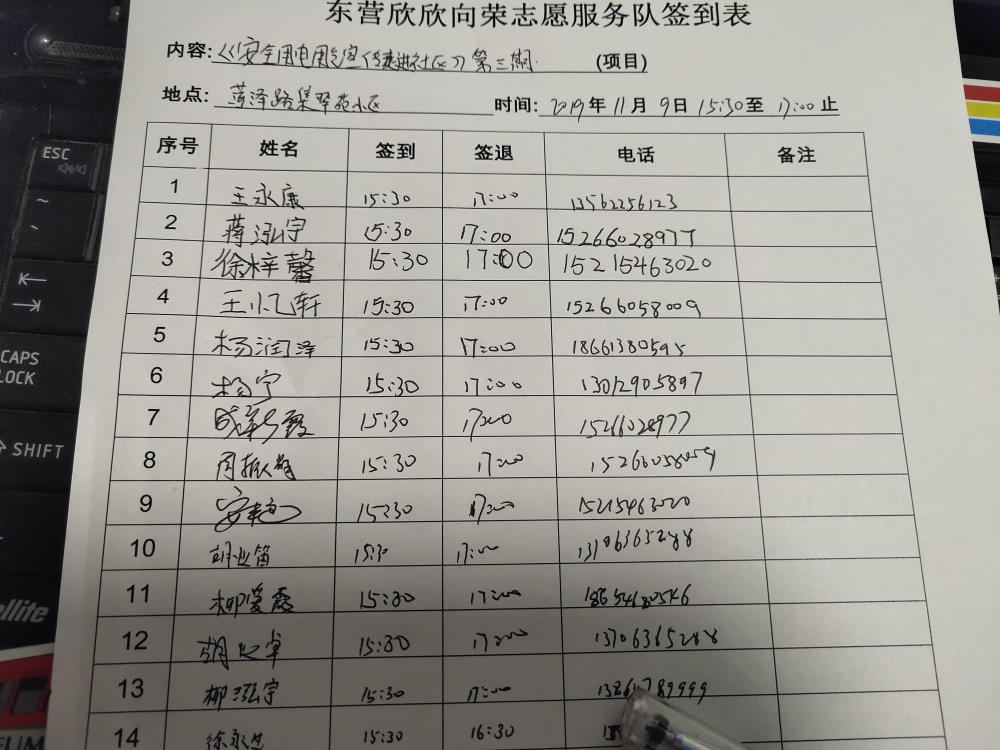 东营欣欣向荣志愿服务队签到表
内容:《安全用电用气宣传走进社区》第三期 (项目)
地点: 菏泽路集翠苑小区 时间: 2019年11月9日15:30至17:00止
序号 姓名 签到 签退 电话 备注
1 王永康 15:30 17:00 13562256123
2 蒋泓宇 15:30 17:00 15266028977
3 徐梓馨 15:30 17:00 15215463020
4 王忆轩 15:30 17:00 15266058009
5 杨润泽 15:30 17:00 18661380595
6 杨宁 15:30 17:00 13012905897
7 成彩霞 15:30 17:00 15266028977
8 周振 15:30 17:00
9 安艳 15:30 17:00 15215463020
10 胡业笛 15:30 17:00 13706365288
11 柳爱霞 15:30 17:00 18654680546
12 胡 卓 15:30 17:00 13706365288
13 柳泓宇 15:30 17:00
14 徐永 15:30 16:30
ESC
~
CAPS
LOCK
SHIFT
ellite